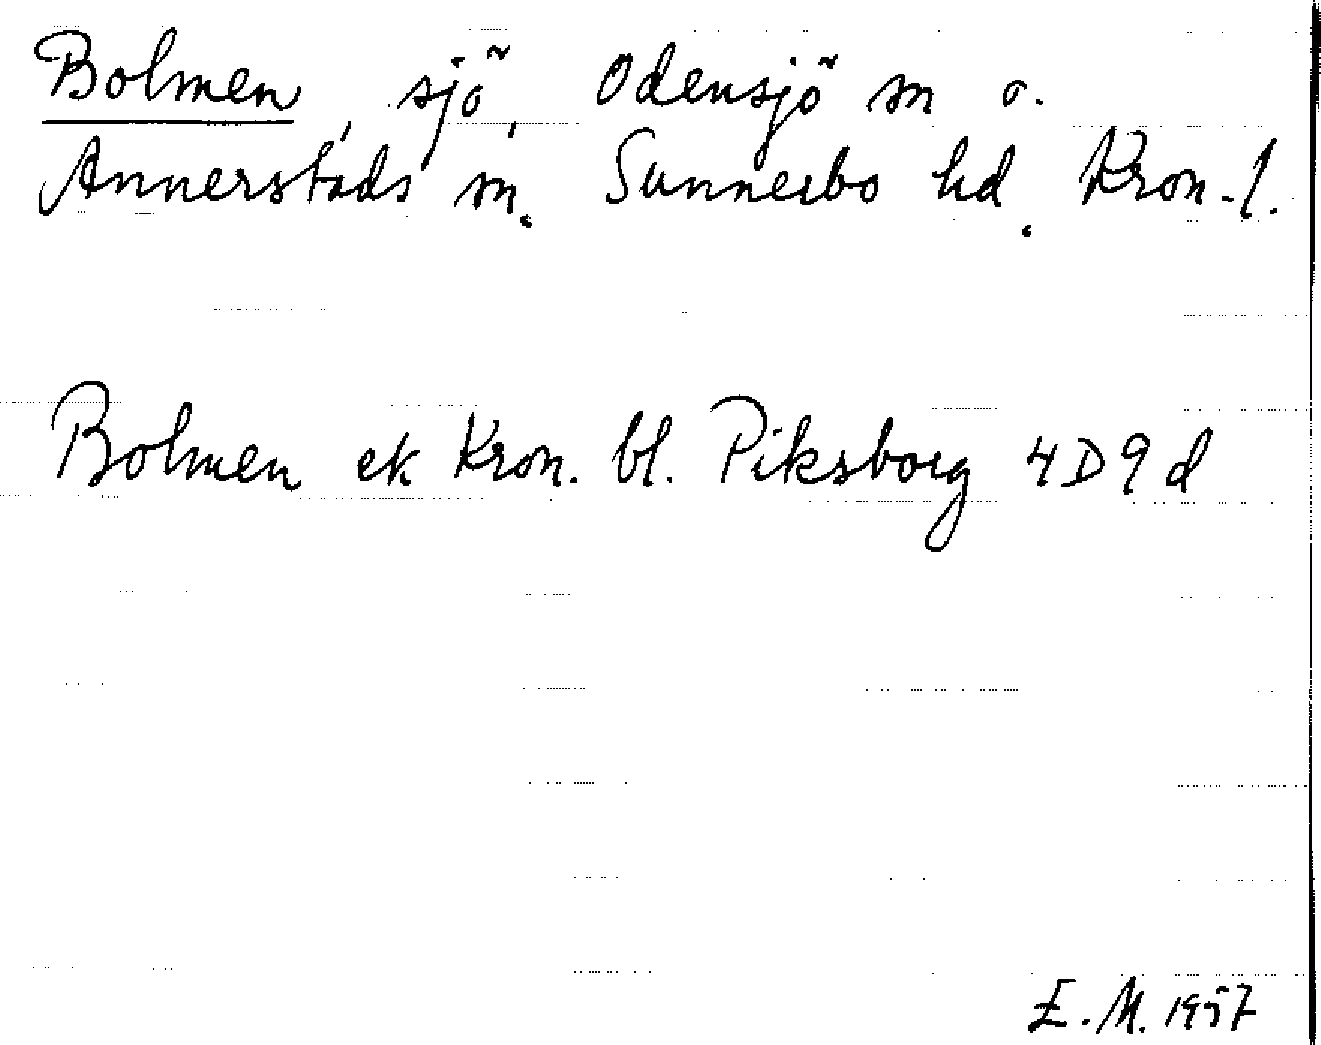 Bolmen, sjö, Odensjö sn o.
Annerstads sn. Sunnerbo hd. Kron.l.
Bolmen ek Kron. bl. Piksborg 4D9d
E.M. 1957